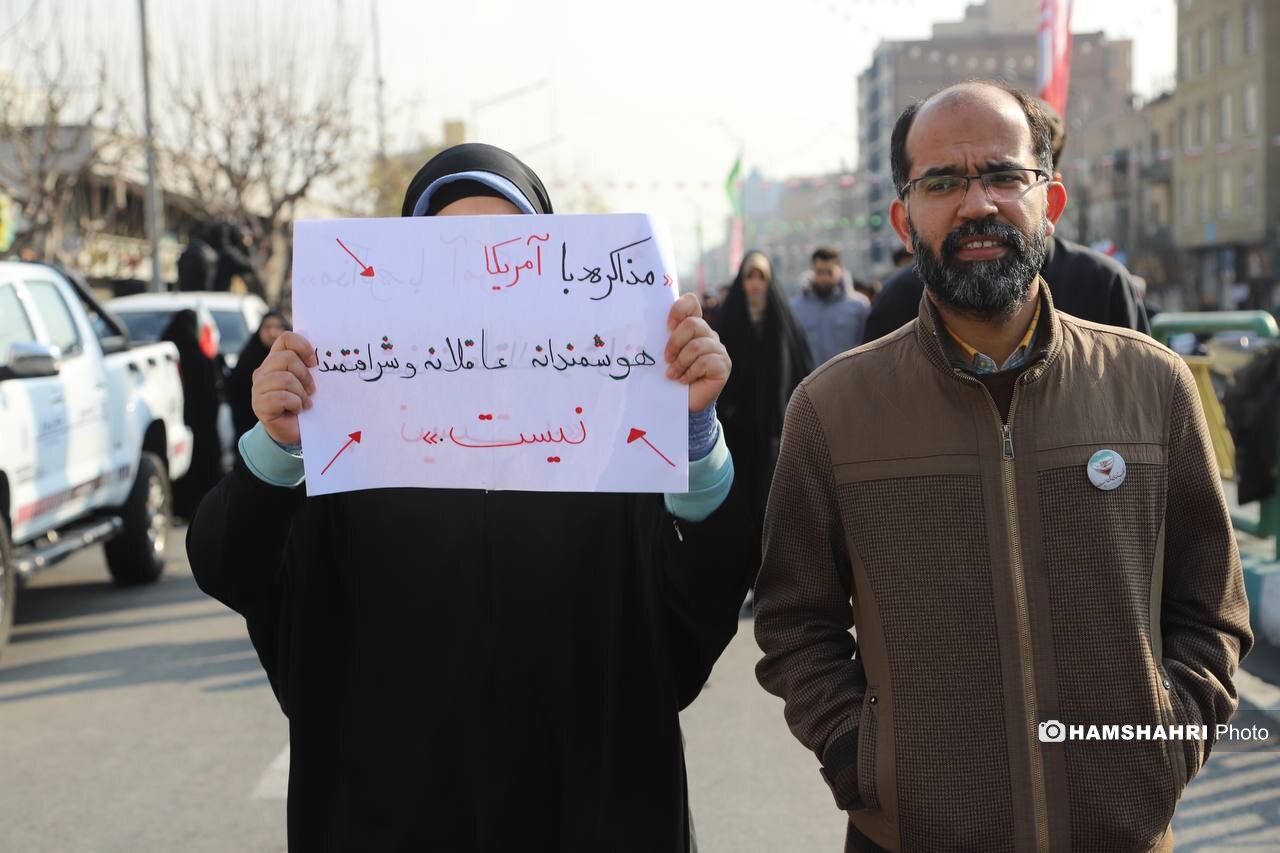 «مذاکره با آمریکا
هوشمندانه عاقلانه و شرافتمندا
نیست.»
HAMSHAHRI Photo